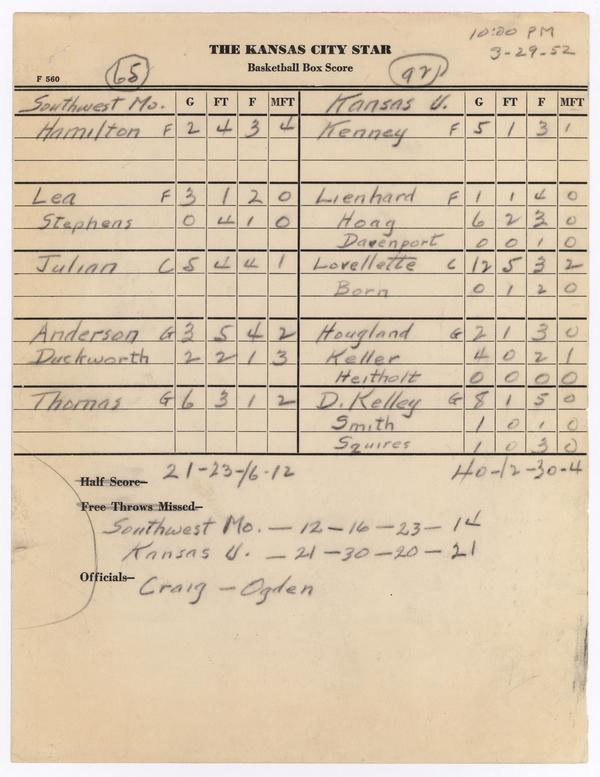 10:00 PM
3-29-52
THE KANSAS CITY STAR
Basketball Box Score
F 560
65
92
Southwest Mo. G FT F MFT Kansas U. G FT F MFT
Hamilton F 2 4 3 4 Kenney F 5 1 3 1
Lea F 3 1 2 0 Lienhard F 1 1 4 0
Stephens 0 4 1 0 Hoag 6 2 3 0
Davenport 0 0 1 0
Julian C 5 4 4 1 Lovellette C 12 5 3 2
Born 0 1 2 0
Anderson G 3 5 4 2 Hougland G 2 1 3 0
Duckworth 2 2 1 3 Keller 4 0 2 1
Heitholt 0 0 0 0
Thomas G 6 3 1 2 D. Kelley G 8 1 5 0
Smith 1 0 1 0
Squires 1 0 3 0
Half Score— 21-23-16-12 40-12-30-4
Free Throws Missed—
Southwest Mo. — 12 — 16 — 23 — 14
Kansas U. — 21 — 30 — 20 — 21
Officials— Craig — Ogden